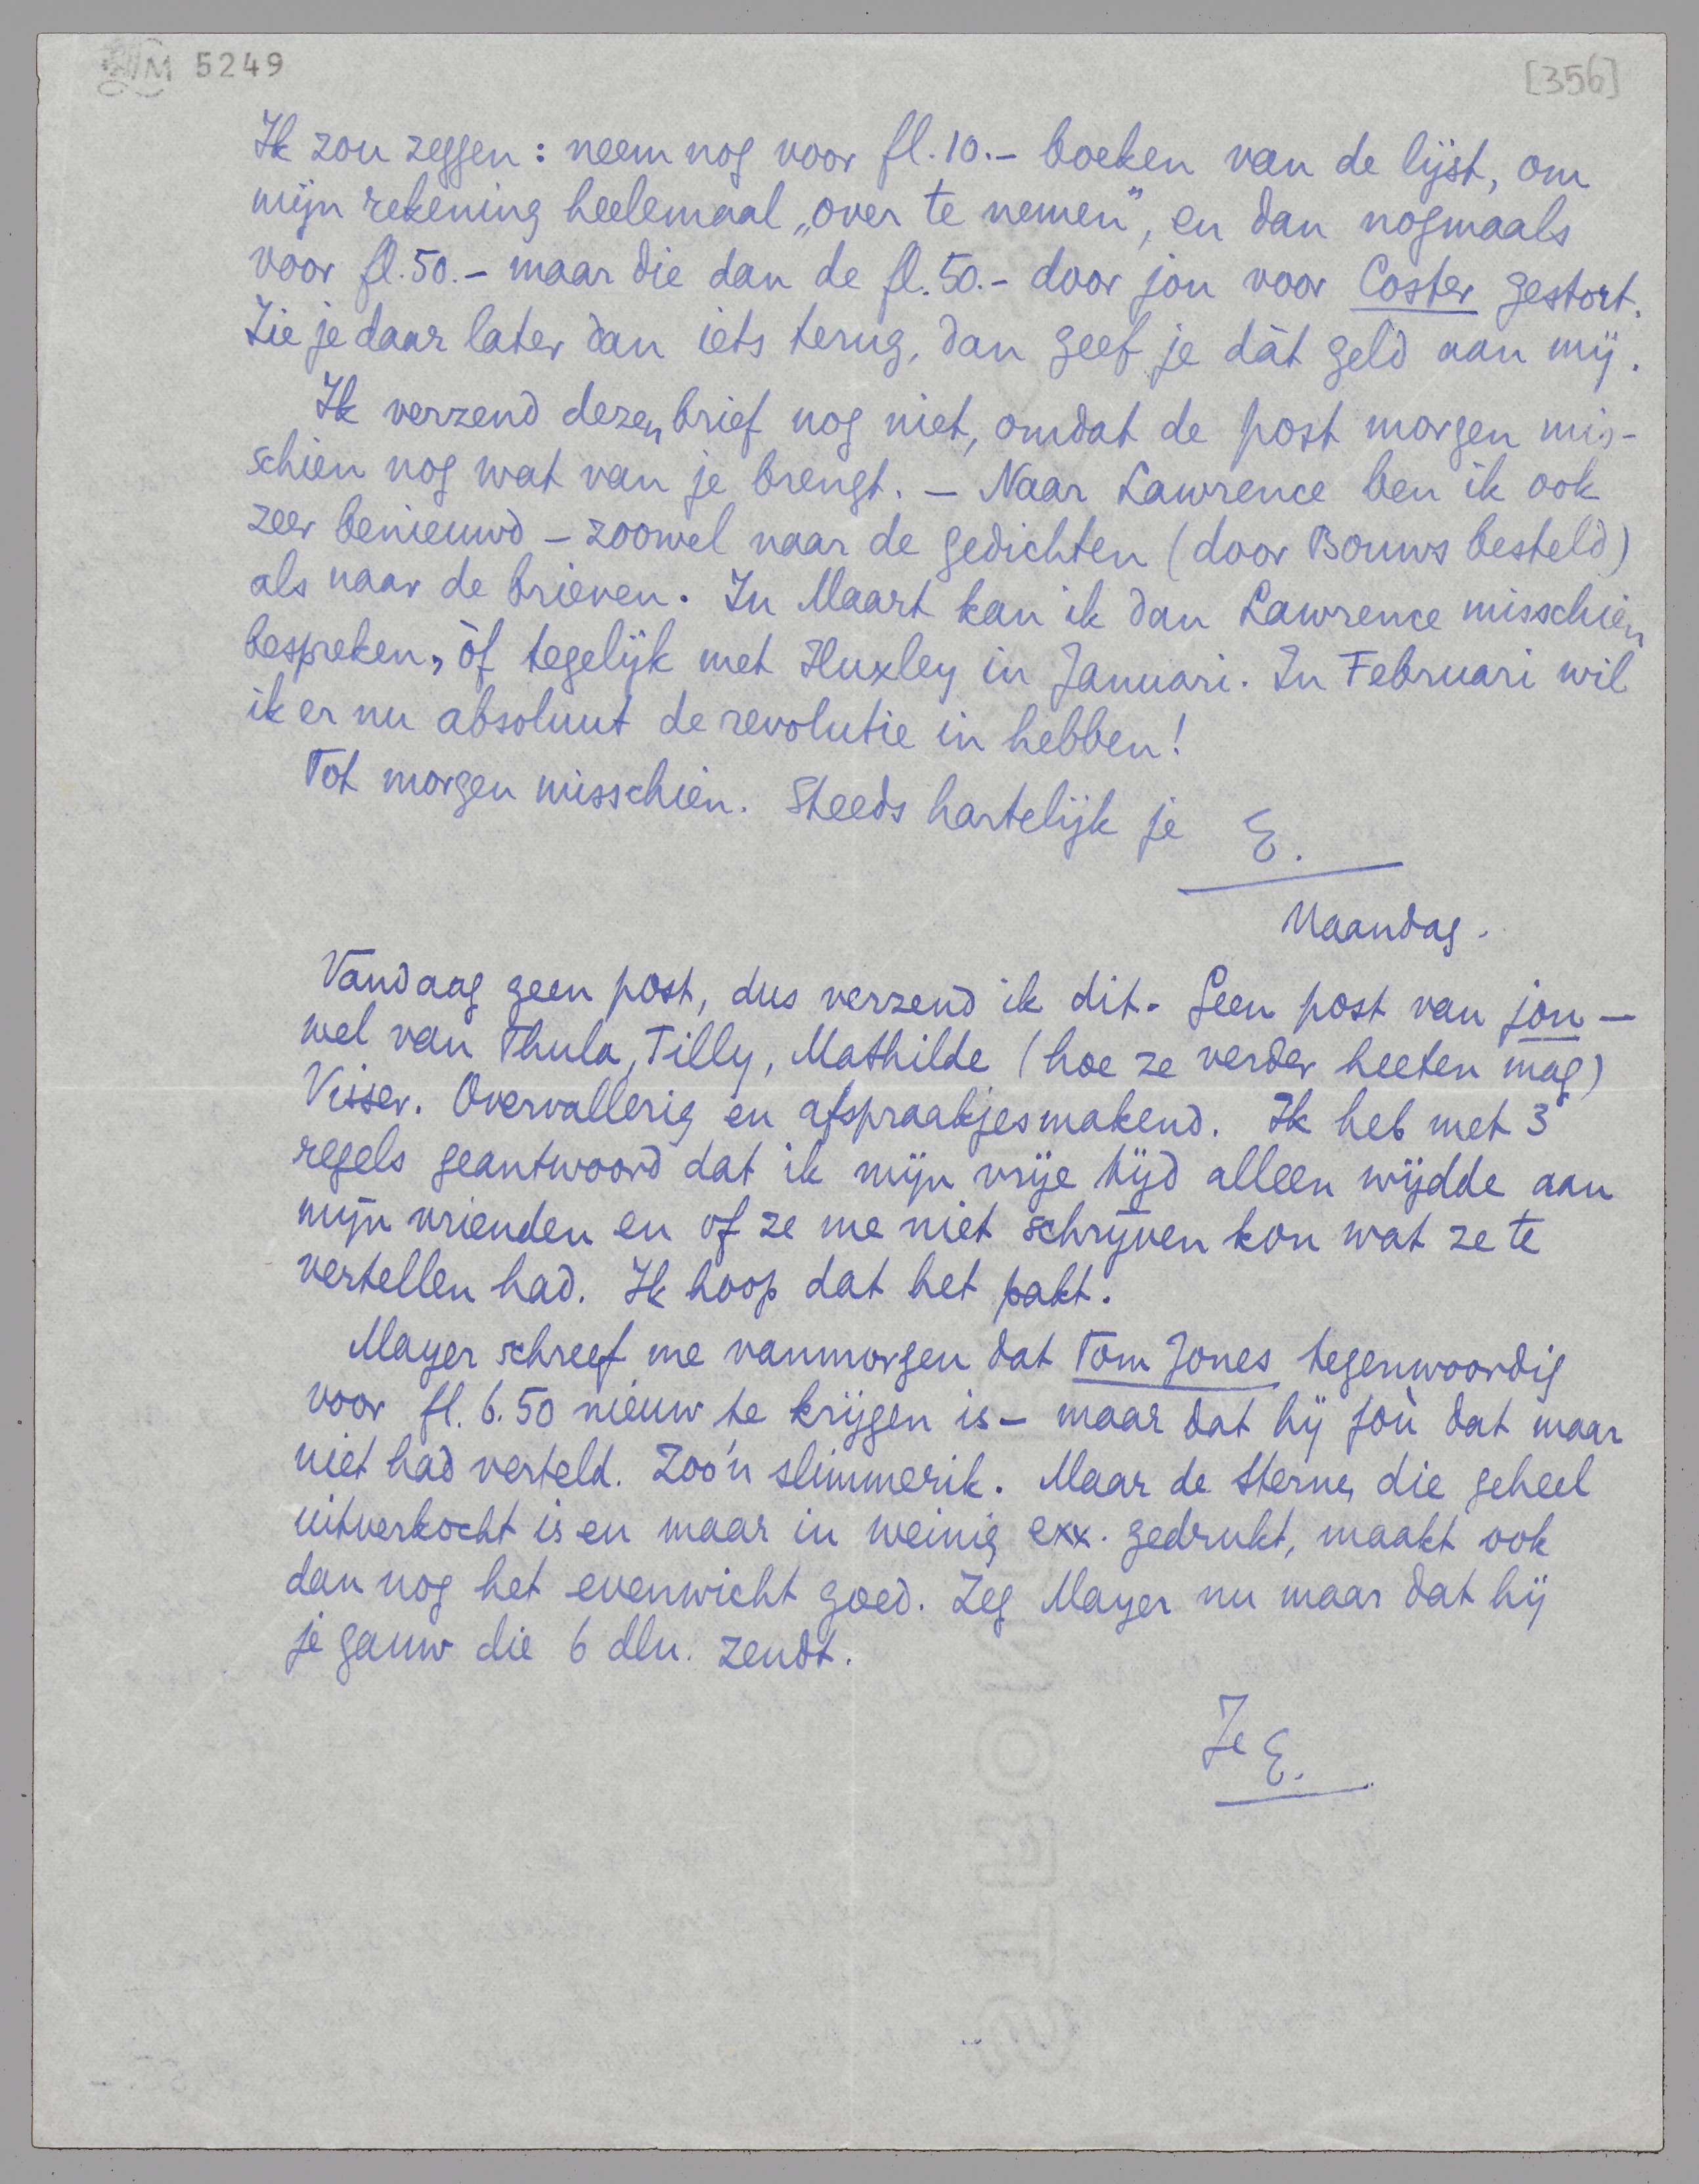 M 5249
[356]
Ik zou zeggen: neem nog voor fl. 10.- boeken van de lijst, om
mijn rekening heelemaal „over te nemen”, en dan nogmaals
voor fl. 50.- maar die dan de fl. 50.- door jou voor Coster gestort.
Zie je daar later dan iets terug, dan geef je dàt geld aan mij.
Ik verzend dezen brief nog niet, omdat de post morgen mis-
schien nog wat van je brengt. - Naar Lawrence ben ik ook
zeer benieuwd - zoowel naar de gedichten (door Bouws besteld)
als naar de brieven. In Maart kan ik dan Lawrence misschien
bespreken, òf tegelijk met Huxley in Januari. In Februari wil
ik er nu absoluut de revolutie in hebben!
Tot morgen misschien. Steeds hartelijk je E.
Maandag.
Vandaag geen post, dus verzend ik dit. Geen post van jou —
wel van Thula, Tilly, Mathilde (hoe ze verder heeten mag)
Visser. Overvallerig en afspraakjesmakend. Ik heb met 3
regels geantwoord dat ik mijn vrije tijd alleen wijdde aan
mijn vrienden en of ze me niet schrijven kon wat ze te
vertellen had. Ik hoop dat het pakt.
Mayer schreef me vanmorgen dat Tom Jones tegenwoordig
voor fl. 6.50 nieuw te krijgen is - maar dat hij joù dat maar
niet had verteld. Zoo'n slimmerik. Maar de Sterne, die geheel
uitverkocht is en maar in weinig exx. gedrukt, maakt ook
dan nog het evenwicht goed. Zeg Mayer nu maar dat hij
je gauw die 6 dln. zendt.
Je E.